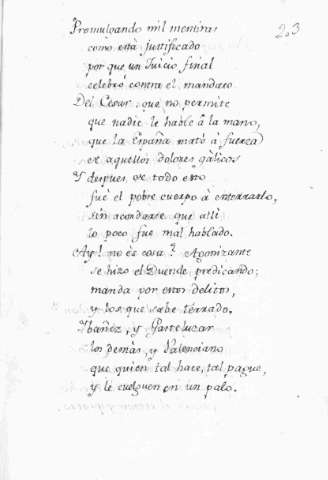 23
Promulgando mil mentiras
como está justificado
por que un Juicio final
celebró contra el mandato
Del Cesar, que no permite
que nadie le hable â la mano,
que la España mató à fuerza
de aquellos dolores galicos
Y despues de todo esto
fué el pobre cuerpo à enterrarlo,
sin acordarse que alli
lo poco fue mal hablado.
Ay! no és cosa? Agonizante
se hizo el Duende predicando;
manda por estos delitos,
y los que sabe terrado.
Ybañez, y Partelugar
los demas, y Valenciano
que quien tal hace, tal pague,
y le cuelguen en un palo.